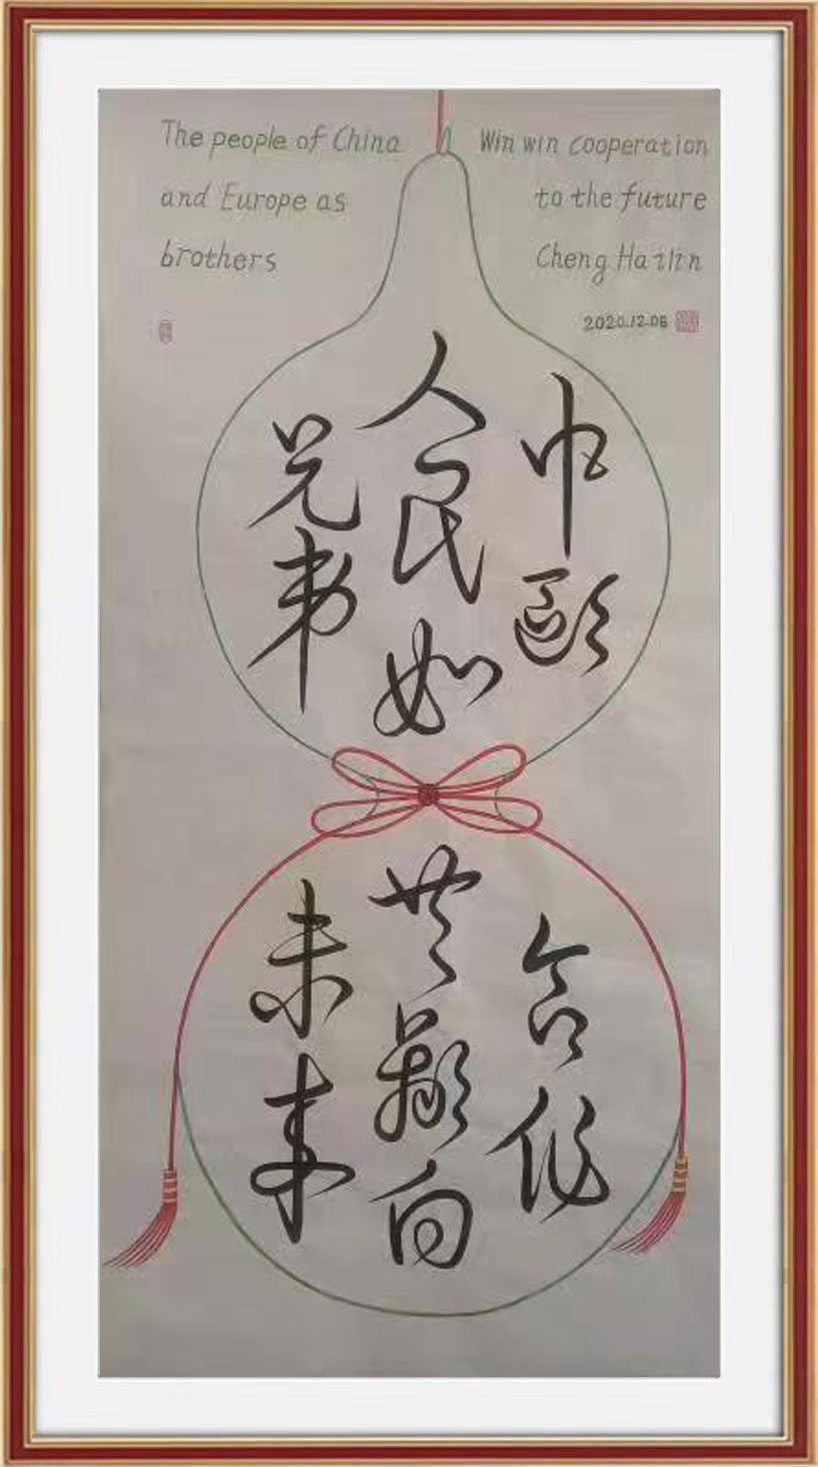 The people of China
and Europe as
brothers
Win win cooperation
to the future
Cheng Hailin
2020.12.06
中歐
人民如
兄弟
合作
共贏向
未来